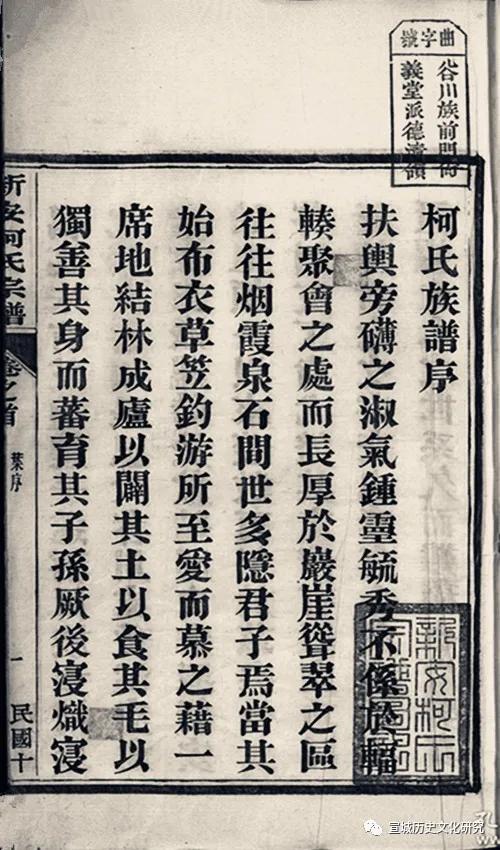 曲字號
谷川族前門衛
義堂派德清領
柯氏族譜序
扶輿旁礴之淑氣鍾靈毓秀不係於輻
輳聚會之處而長厚於巖崖聳翠之區
往往烟霞泉石間世多隱君子焉當其
始布衣草笠釣游所至愛而慕之藉一
席地結林成廬以闢其土以食其毛以
獨善其身而蕃育其子孫厥後寖熾寖
新安柯氏宗譜
卷之首
葉序
一
民國十
新安柯氏
宣城历史文化研究